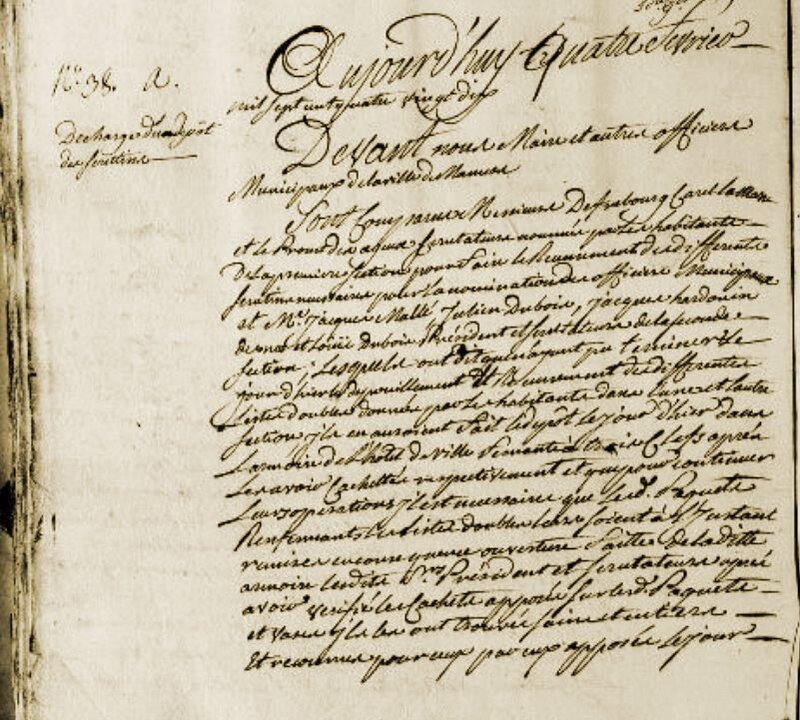 N.° 38. a.
Decharge du depôt
des scrutins
Aujourd'huy Quatre fevrier
mil sept cent quatre vingt dix
Devant nous Maire et autres officiers
Municipaux de la ville de Mamers
Sont Comparus Messieurs Defrebourg Carel
et le Proust des ageux scrutateurs nommés par les habitants
De la premiere section pour faire le Recensement des differents
scrutins necessaires pour la nomination des officiers Municipaux
et M.rs Jacques Mallé Julien Dubois, Jacques hardouin
et Louis Dubois President et scrutateurs de la seconde
section; Lesquels ont dit que n'ayant pu terminer le
jour d'hier le depouillement et Recensement des differentes
Listes doubles données par les habitants dans l'une et l'autre
section ils en auroient fait le depôt le jour D'hier dans
L'armoire de l'hôtel de ville fermante à trois Clefs après
Les avoir Cachettés respectivement et que pour continuer
Leurs operations il est necessaire que lesd. Paquets
Renfermants les Listes doubles leurs soient à L'instant
remises en consequence ouverture faitte de la ditte
armoire lesdits S.rs President et scrutateurs après
avoir verifié les Cachets apposés sur lesd. Paquets
et vases ils les ont trouvés sains et entiers
Et reconnus pour ceux par eux apposés le jour